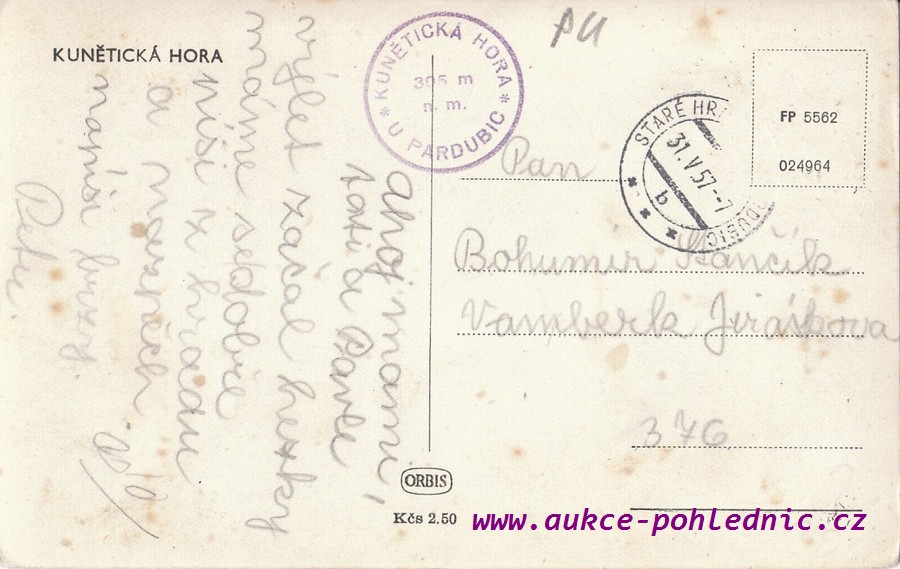 KUNĚTICKÁ HORA
* KUNĚTICKÁ HORA *
305 m
n. m.
U PARDUBIC
PU
STARÉ HR
31.V.57-7
b
DUBIC
FP 5562
024964
Ahoj mami,
tati a Pavle
výlet začal hezky
máme se dobře
píši z hradu
a
napíši brzy.
Petr.
Pan
Bohumír
Vamberk Jiráskova
376
ORBIS
Kčs 2.50
www.aukce-pohlednic.cz